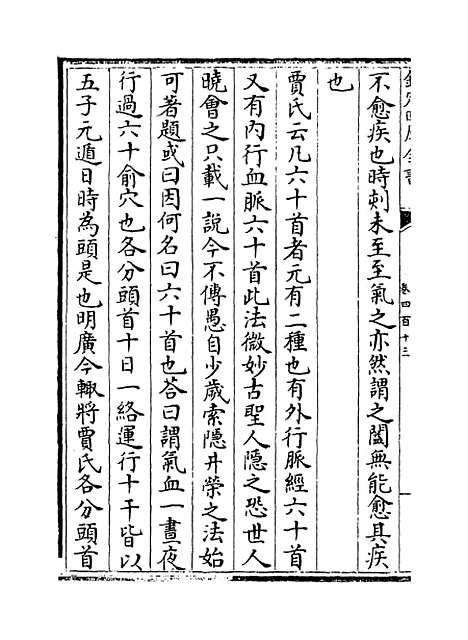 欽定四庫全書
卷四百十三
不愈疾也時刺未至至氣之亦然謂之闔無能愈其疾
也
賈氏云凡六十首者元有二種也有外行脈經六十首
又有內行血脈六十首此法微妙古聖人隱之恐世人
曉會之只載一說今不傳愚自少歲索隱井滎之法始
可著題或曰因何名曰六十首也答曰謂氣血一晝夜
行過六十俞穴也各分頭首十日一絡運行十干皆以
五子元遁日時為頭是也明廣今輒將賈氏各分頭首